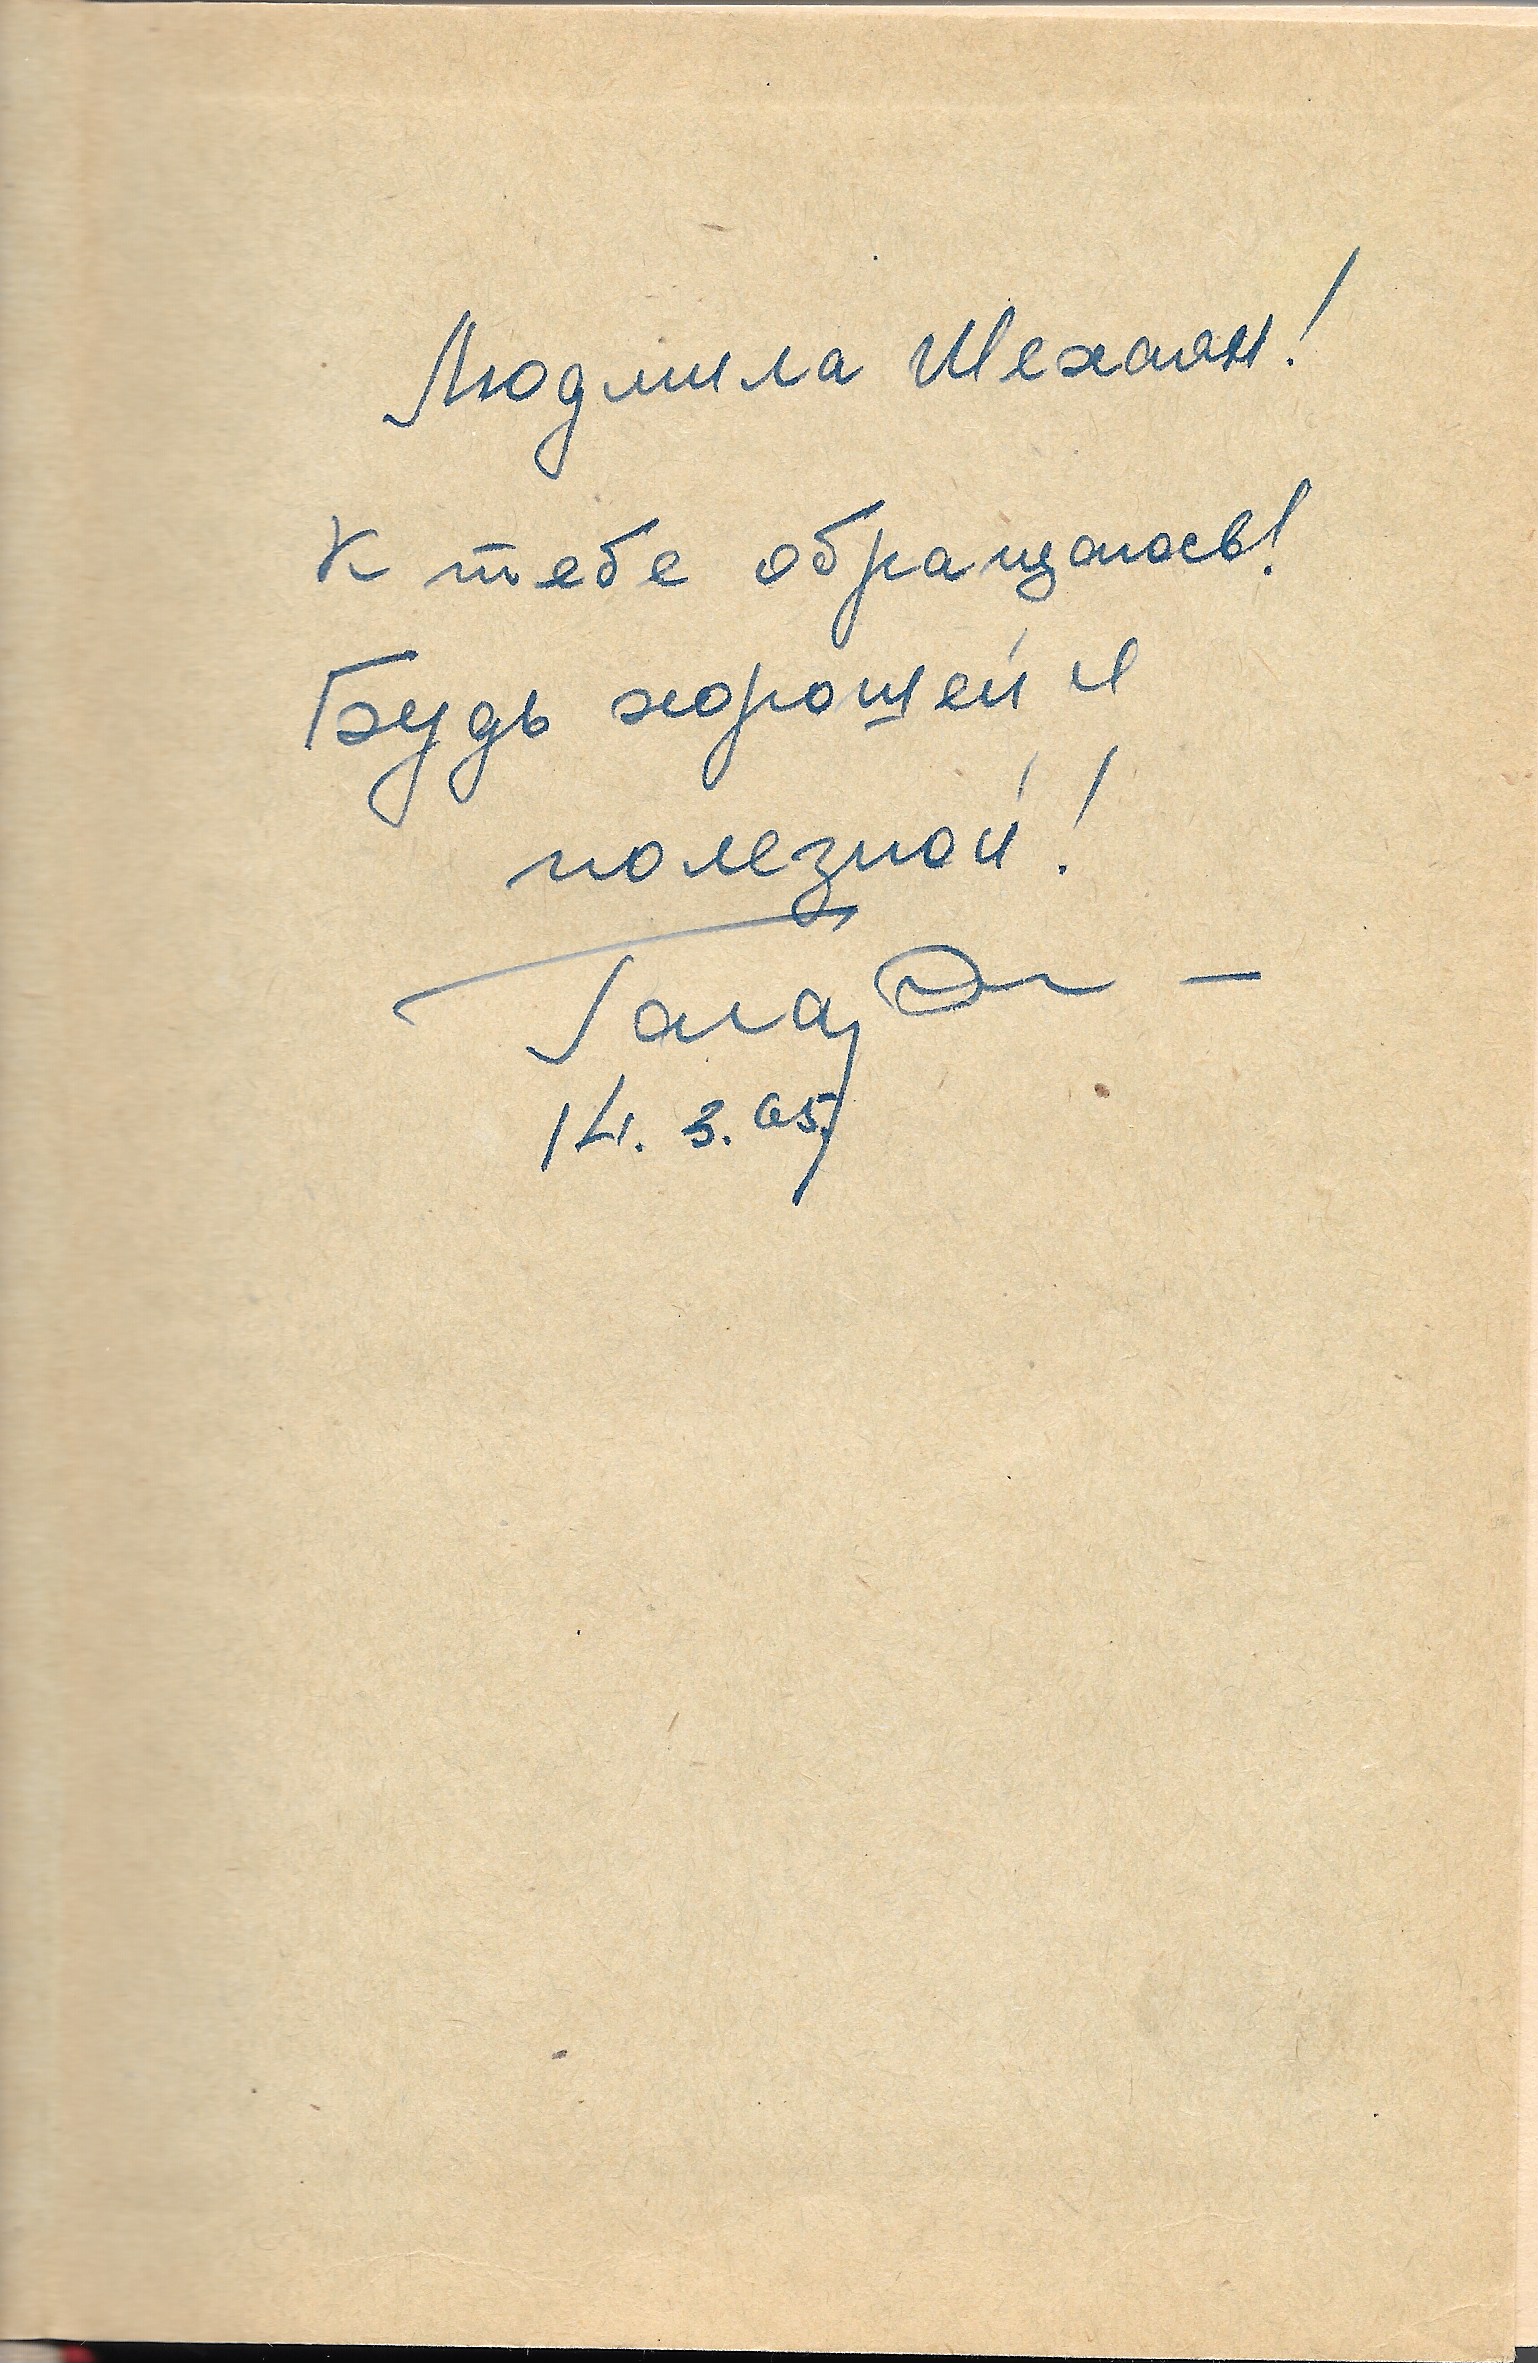 Людмила Шехаян!
К тебе обращаюсь!
Будь хорошей и
полезной!
14.3.65